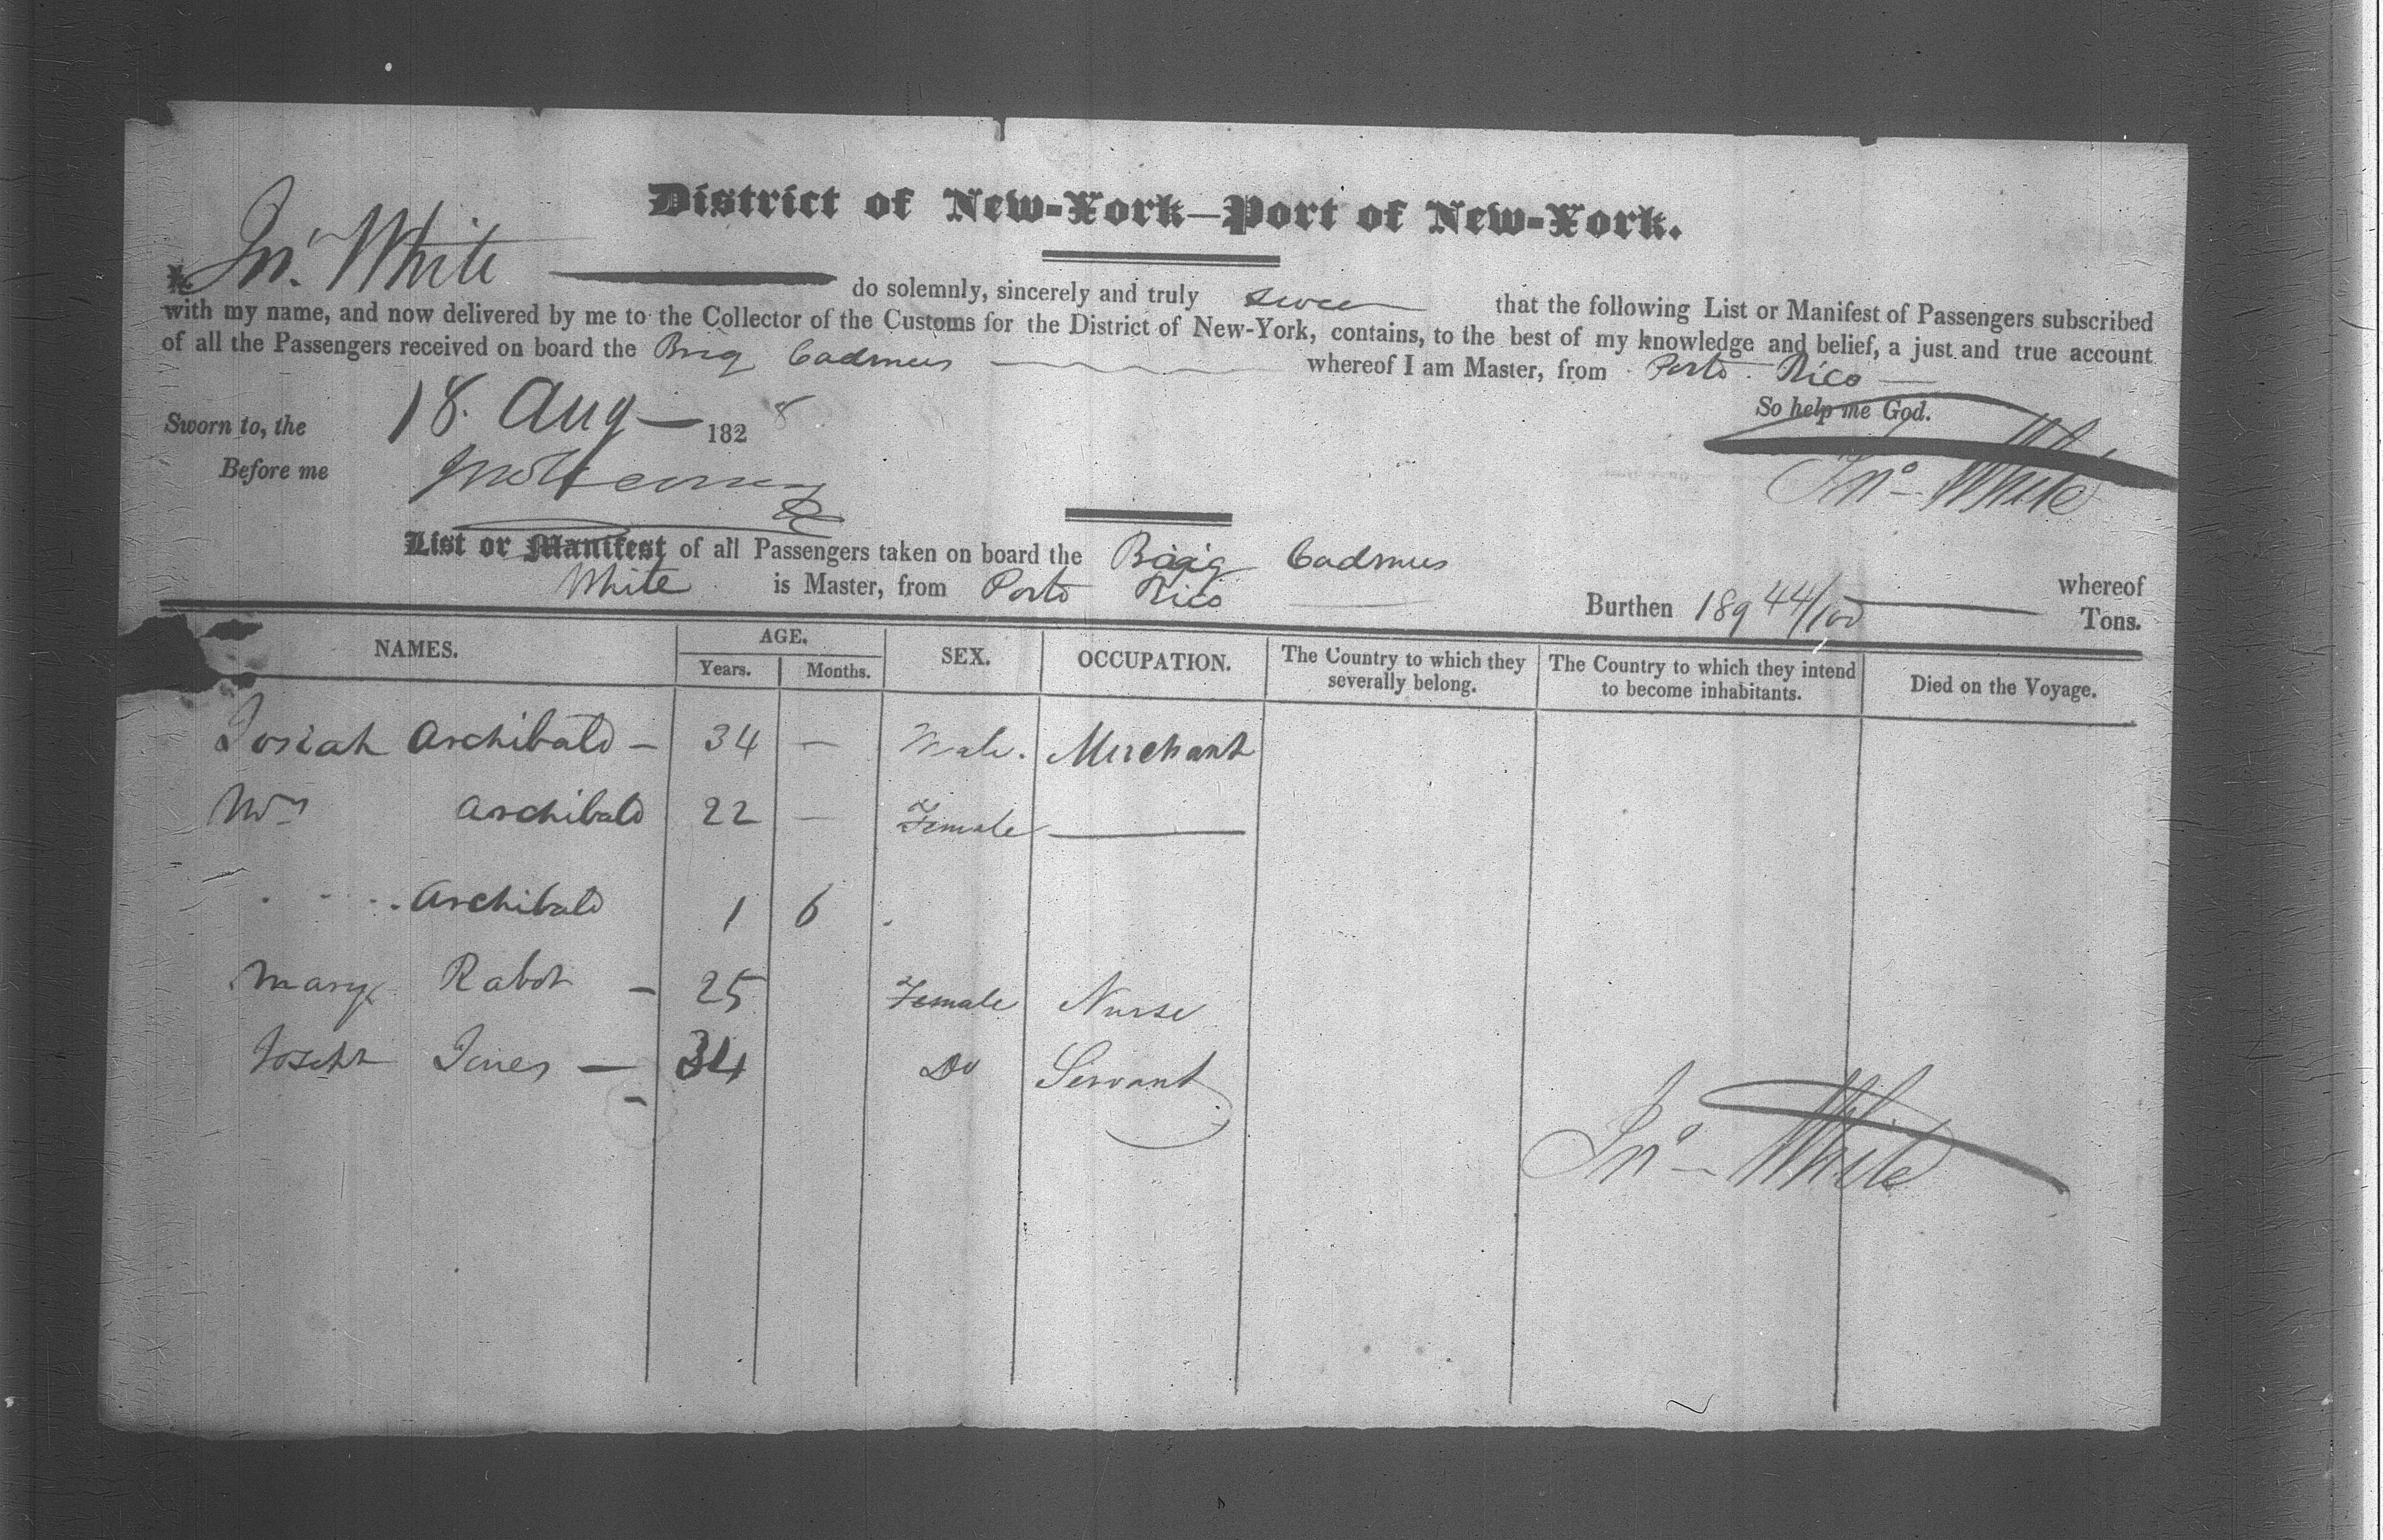 District of New-York—Port of New-York.
I, Jno. White do solemnly, sincerely and truly swear that the following List or Manifest of Passengers subscribed
with my name, and now delivered by me to the Collector of the Customs for the District of New-York, contains, to the best of my knowledge and belief, a just and true account
of all the Passengers received on board the Brig Cadmus whereof I am Master, from Porto Rico
So help me God.
Sworn to, the 18. Aug — 1828
Before me
Jno White
List or Manifest of all Passengers taken on board the Brig Cadmus whereof
White is Master, from Porto Rico Burthen 189 44/100 Tons.
NAMES. AGE. SEX. OCCUPATION. The Country to which they severally belong. The Country to which they intend to become inhabitants. Died on the Voyage.
Years. Months.
Josiah Archibald — 34 — Male. Merchant
Mrs Archibald 22 — Female —
Archibald 1 6
Mary Rabot — 25 Female Nurse
Joseph — 34 Do Servant
Jno White